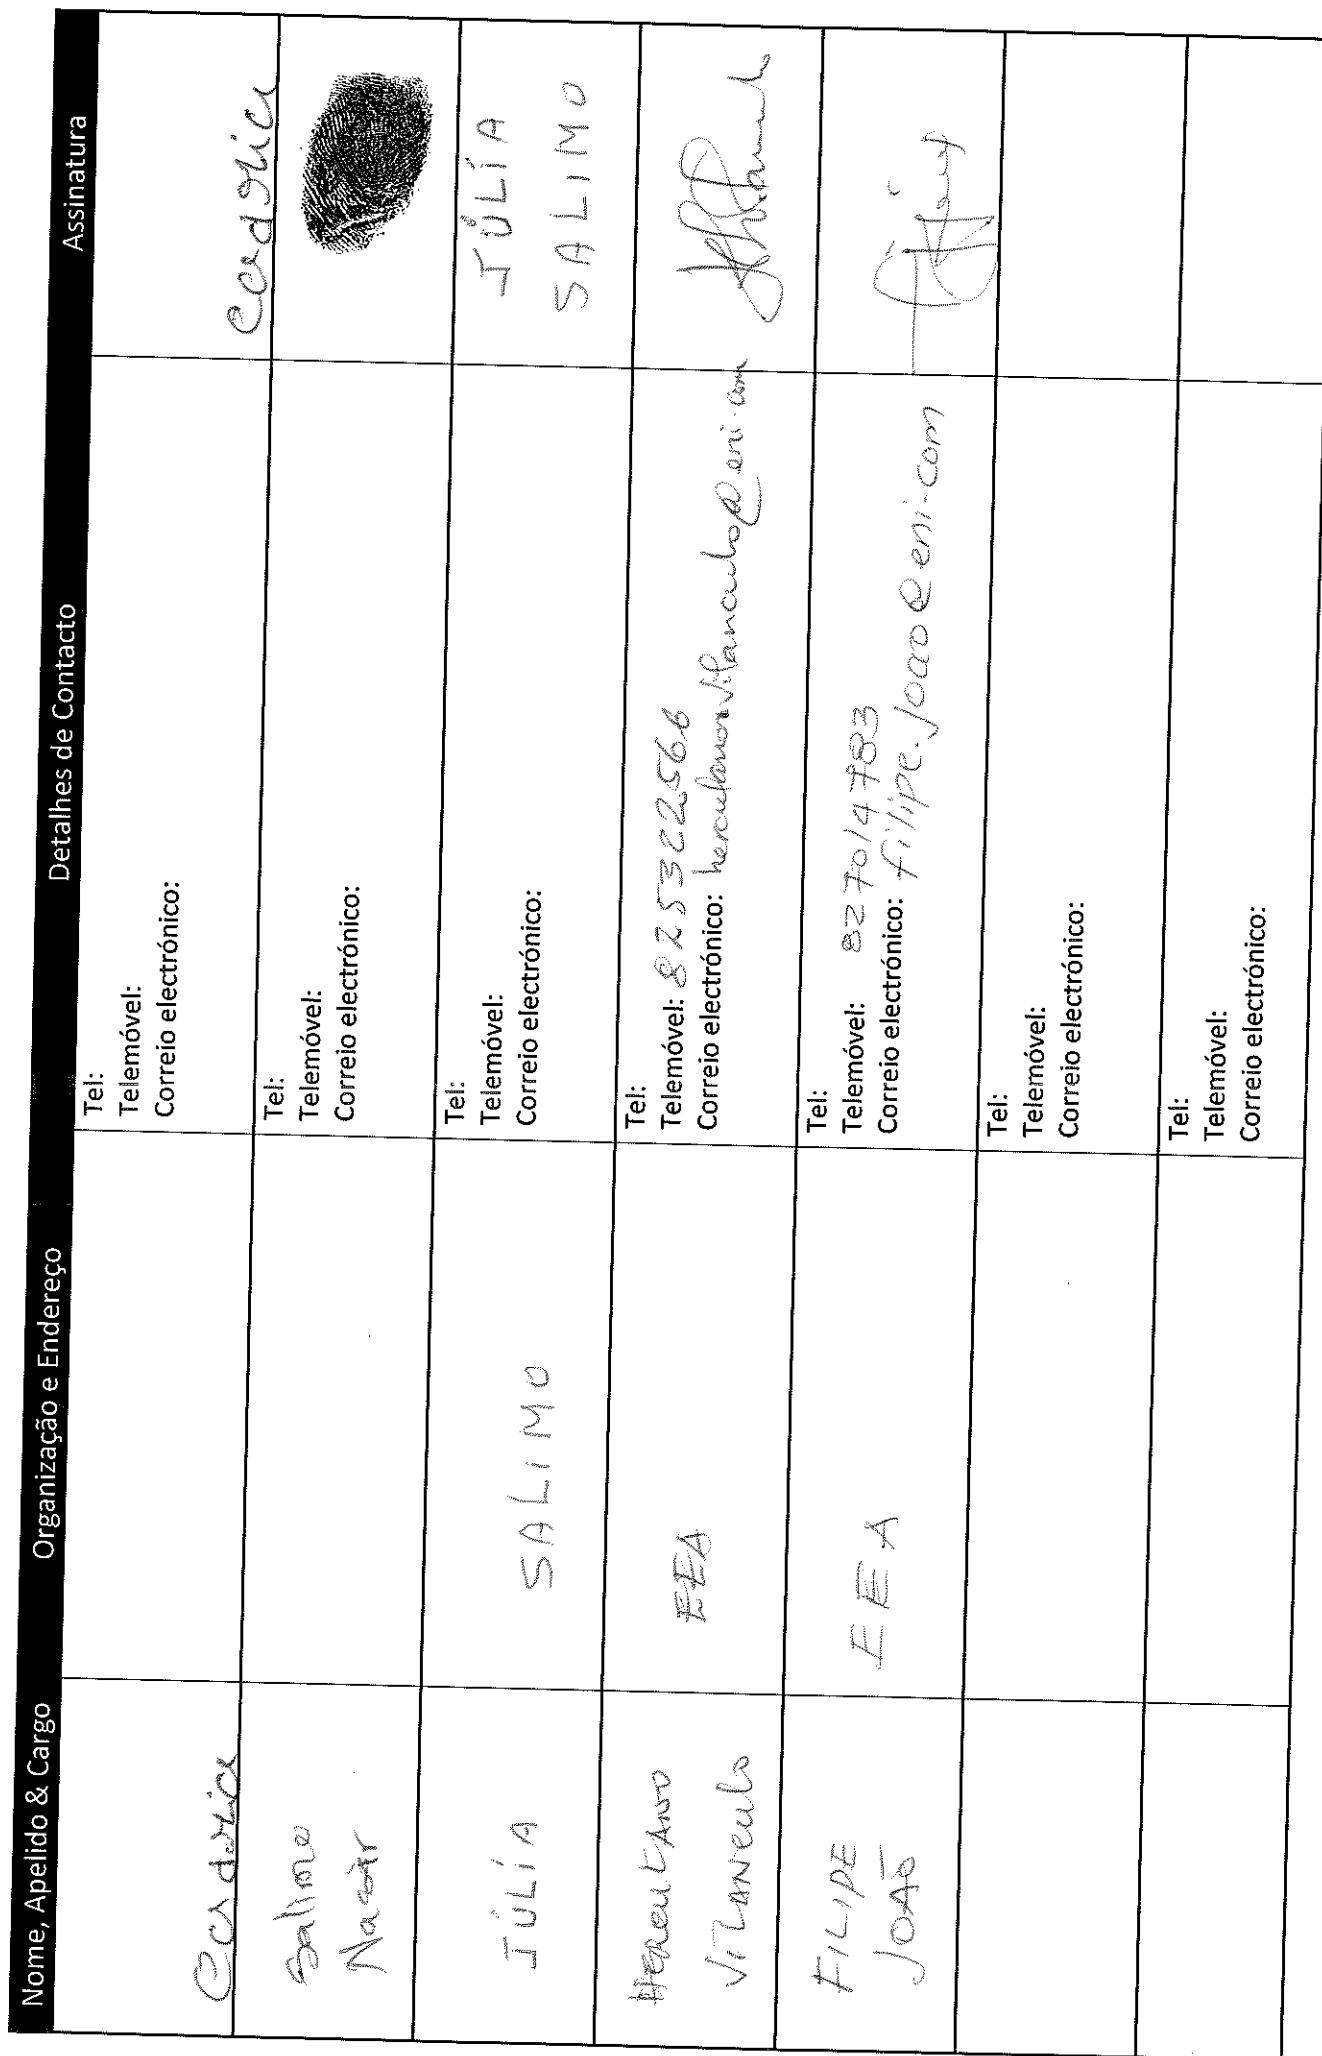 Nome, Apelido & Cargo Organização e Endereço Detalhes de Contacto Assinatura
Tel:
Telemóvel:
Correio electrónico:
Tel:
Telemóvel:
Correio electrónico:
Salimo
Nacir
Tel:
Telemóvel:
Correio electrónico:
JÚLÍA SALIMO JÚLÍA
SALIMO
Tel:
Telemóvel: 825322566
Correio electrónico: herculano.vilanculo@eni.com
HERCULANO EEA
VILANCULO
Tel:
Telemóvel: 827014783
Correio electrónico: filipe.joao@eni.com
FILIPE EEA
JOAO
Tel:
Telemóvel:
Correio electrónico:
Tel:
Telemóvel:
Correio electrónico: